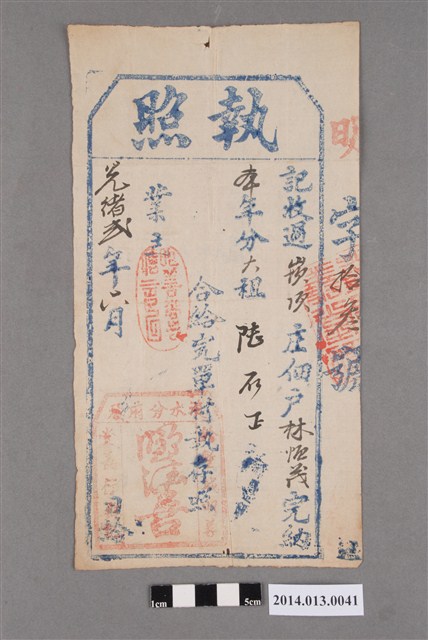 執照
明字拾叁號
記收過崁頂庄佃戶林恒茂完納
本年分大租陸石正
合給完單付執存照
業主
光緒弍年六月 日給
1cm 5cm
2014.013.0041